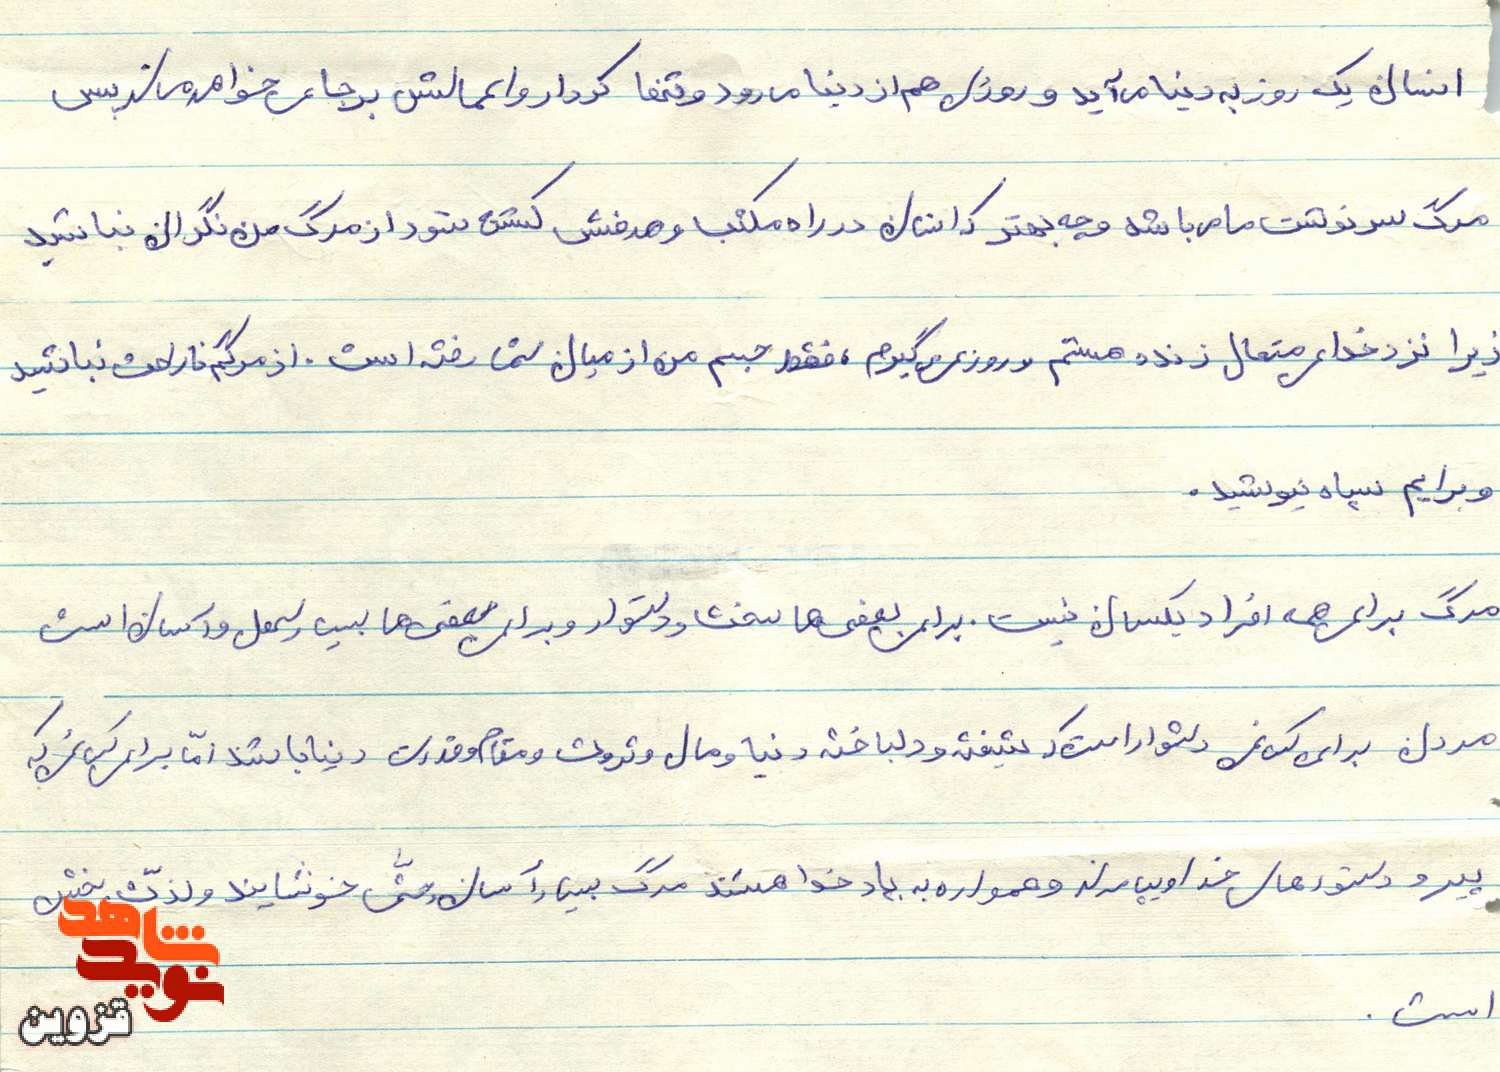 انسان یک روز به دنیا می‌آید و روزی هم از دنیا می‌رود و تنها کردار و اعمالش بر جای خواهد ماند پس
مرگ سرنوشت ما می‌باشد و چه بهتر که انسان در راه مکتب و هدفش کشته شود از مرگ من نگران نباشید
زیرا نزد خدای متعال زنده هستم و روزی می‌گیرم ، فقط جسم من از میان شما رفته است . از مرگم ناراحت نباشید
و برایم سیاه نپوشید .
مرگ برای همه افراد یکسان نیست . برای بعضی‌ها سخت و دشوار و برای بعضی‌ها بسیار سهل و آسان است
مردن برای کسانی دشوار است که شیفته و دلباخته دنیا و مال و ثروت و مقام و قدرت دنیا باشند امّا برای کسانی که
پیرو دستورهای خدا و پیامبرند و همواره به یاد خدا هستند مرگ بسیار آسان و حتّی خوشایند و لذّت بخش
است .
نوید شاهد
قزوین